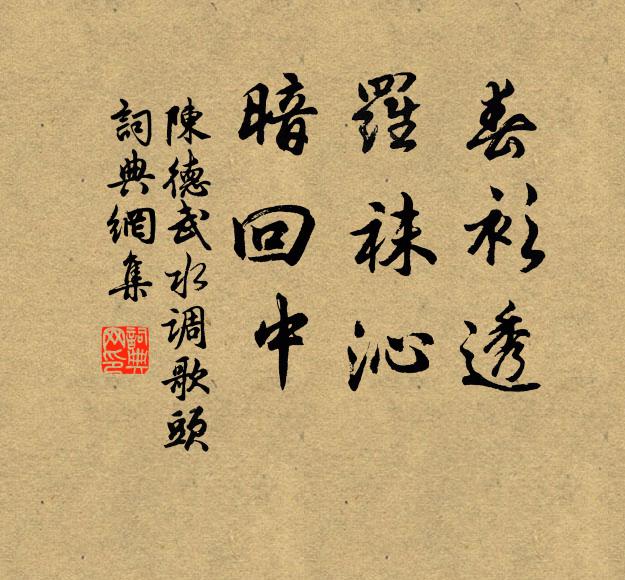 春衫透
羅袜沁
暗回中
陳德武水调歌頭
詞典網集
詞典
网印